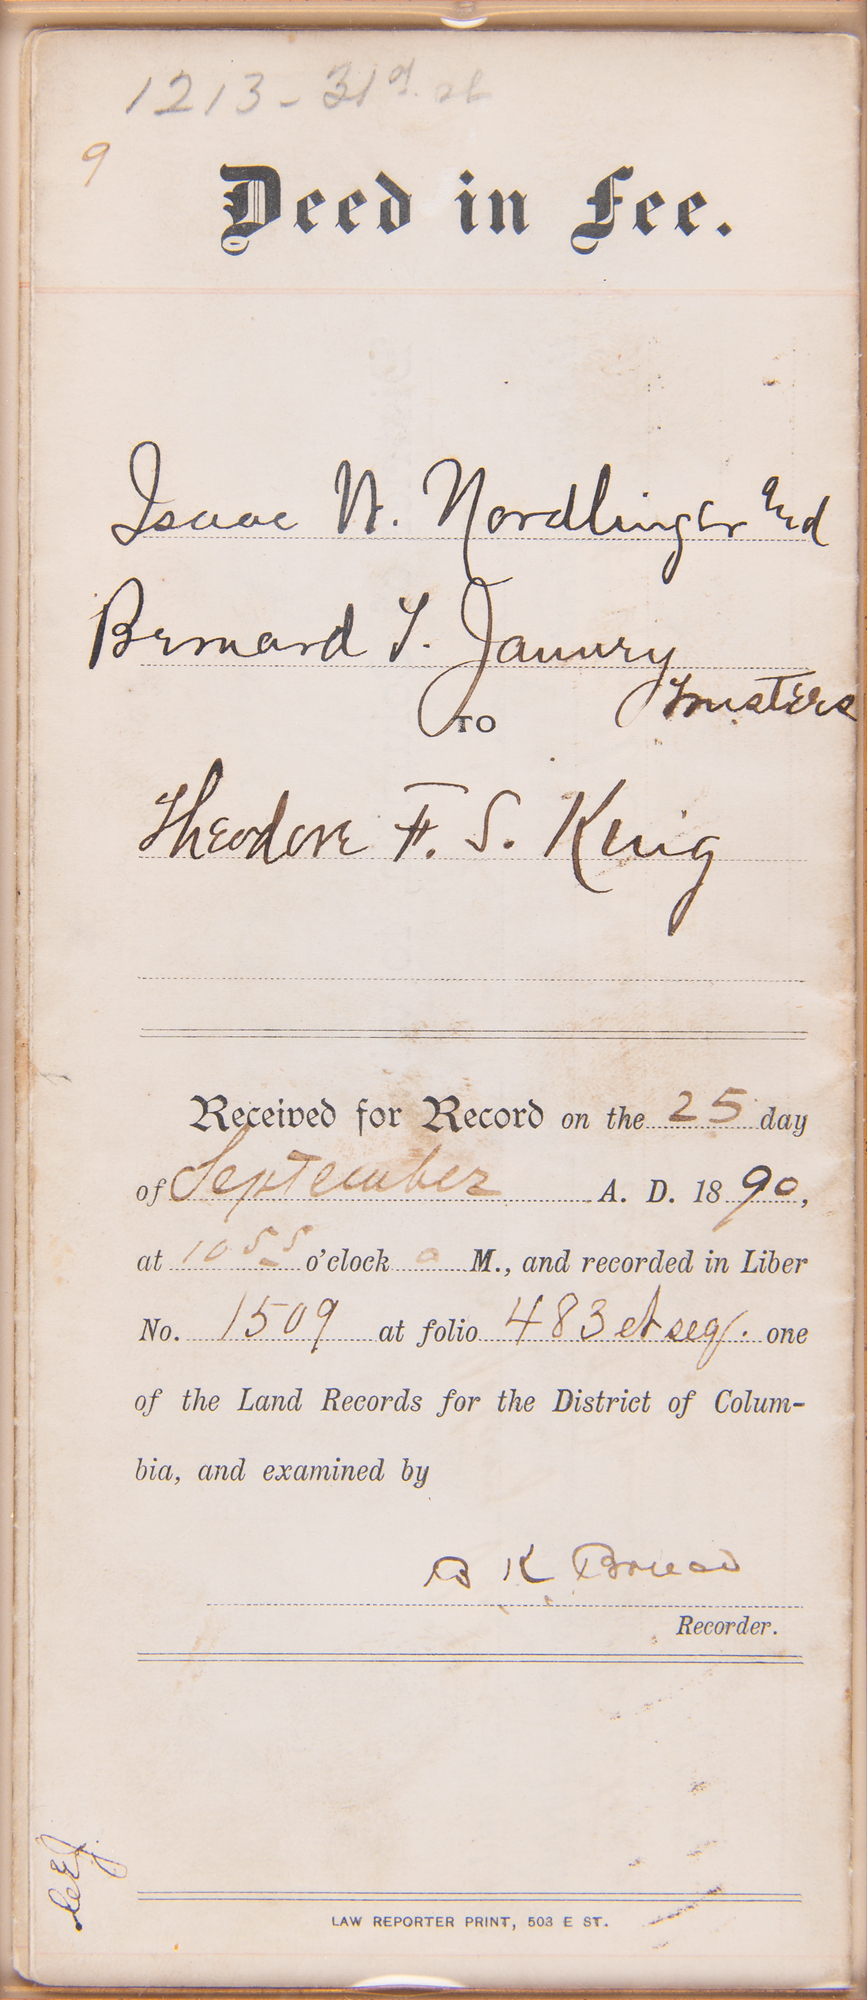 1213 - 31st st
9
Deed in Fee.
Isaac N. Nordlinger and
Bernard T. Janney
Trustees
TO
Theodore F. S. King
Received for Record on the 25 day
of September A. D. 1890,
at 10 55 o'clock a M., and recorded in Liber
No. 1509 at folio 483 et seq. one
of the Land Records for the District of Colum-
bia, and examined by
B K Bruce
Recorder.
LAW REPORTER PRINT, 503 E ST.